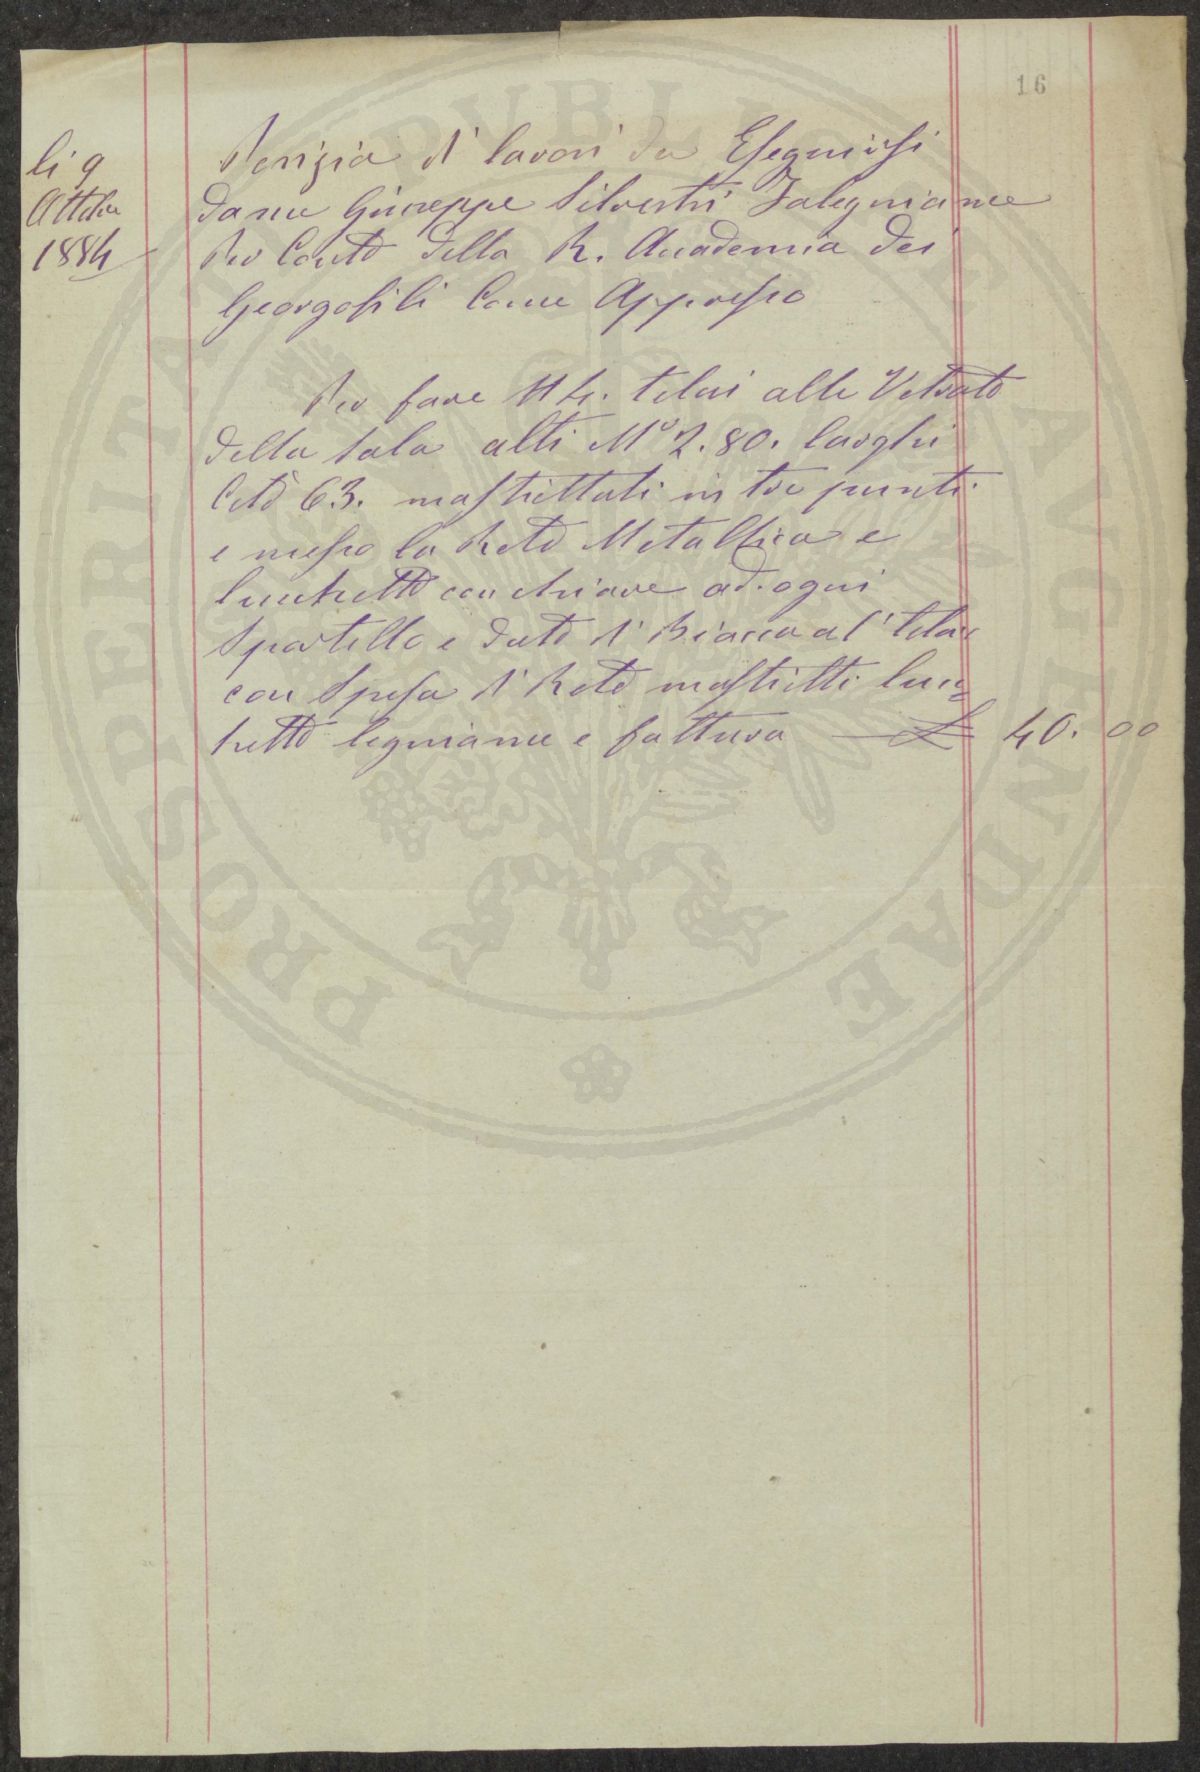 16
li 9
Ottobre
1884
Perizia di lavori da Eseguirsi
da me Giuseppe Silvestri Falegniame
Per Conto della R. Accademia dei
Georgofili Come Appresso
Per fare N 4. telai alle Vetrate
della Sala alti Mo 2.80. larghi
Cto 63. mastiettati in tre punti
e messo la Rete Metallica e
lucchetto con chiave ad ogni
Sportello e dato di Biacca al' telai
con Spesa di Rete mastietti luc=
hetto legniame e fattura £ 40.00
PROSPERITATI PUBLICAE AUGENDAE